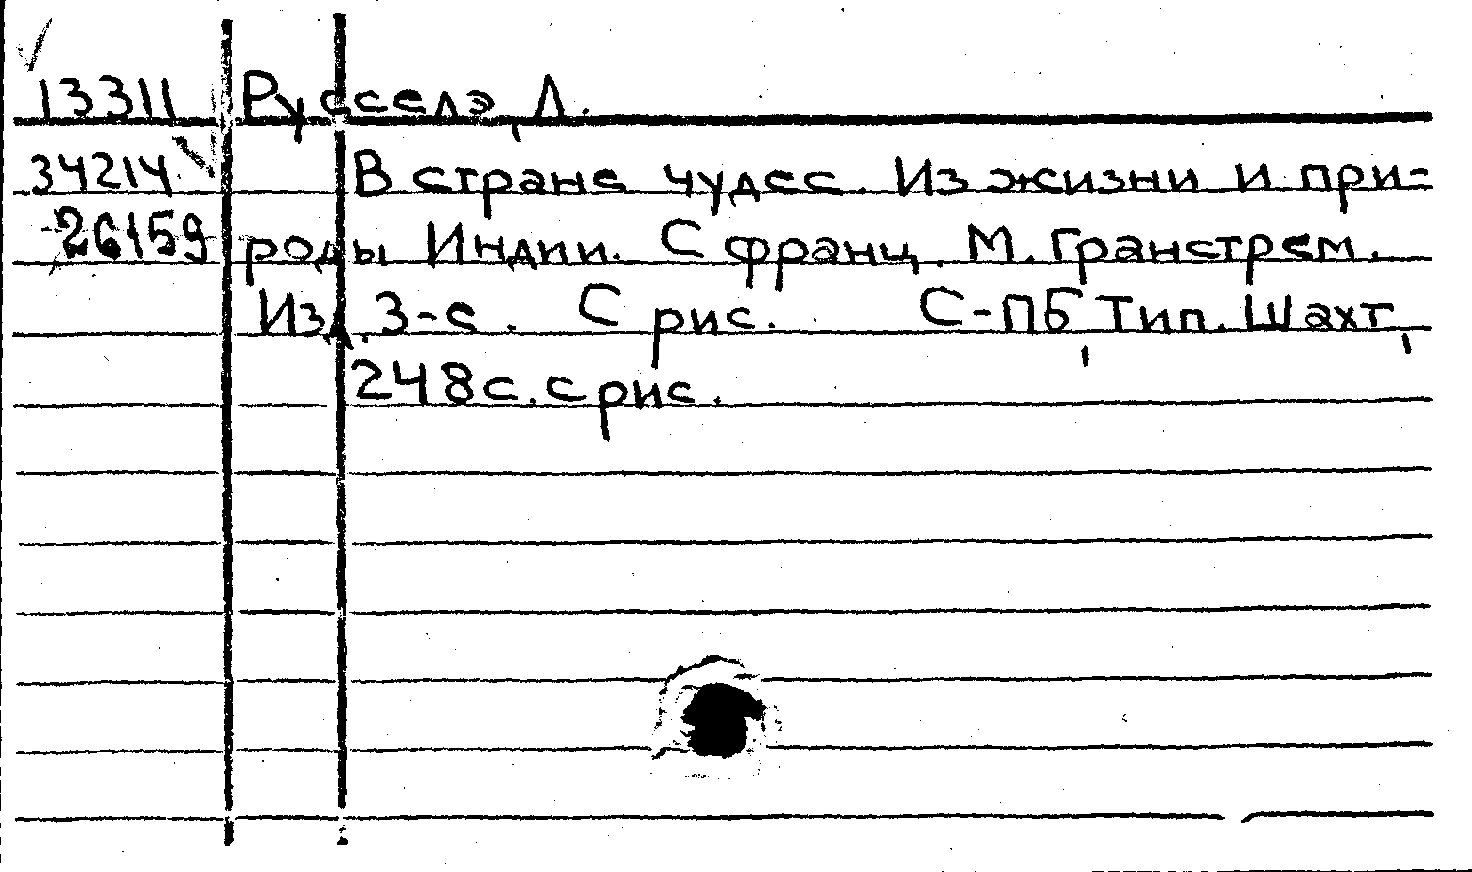 13311 Русселэ, Л.
34214 В стране чудес. Из жизни и при-
26159 роды Индии. С франц. М. Гранстрем.
Изд. 3-е. С рис. С-ПБ, Тип. Шахт,
248с. с рис.